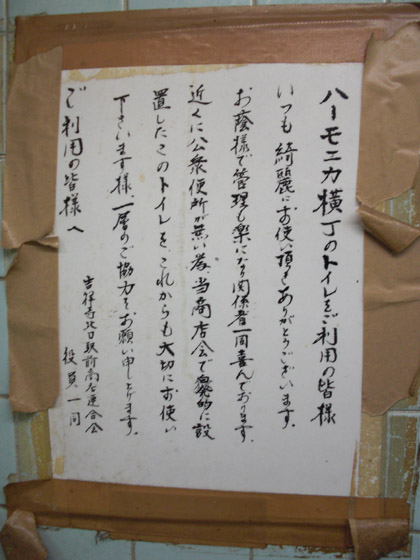 ハーモニカ横丁のトイレをご利用の皆様
いつも綺麗にお使い頂きありがとうございます。
お蔭様で管理も楽になり関係者一同喜んでおります。
近くに公衆便所が無い為当商店会で自発的に設
置したこのトイレを、これからも大切にお使い
下さいます様、一層のご協力をお願い申し上げます。
ご利用の皆様へ
吉祥寺北口駅前商店連合会
役員一同